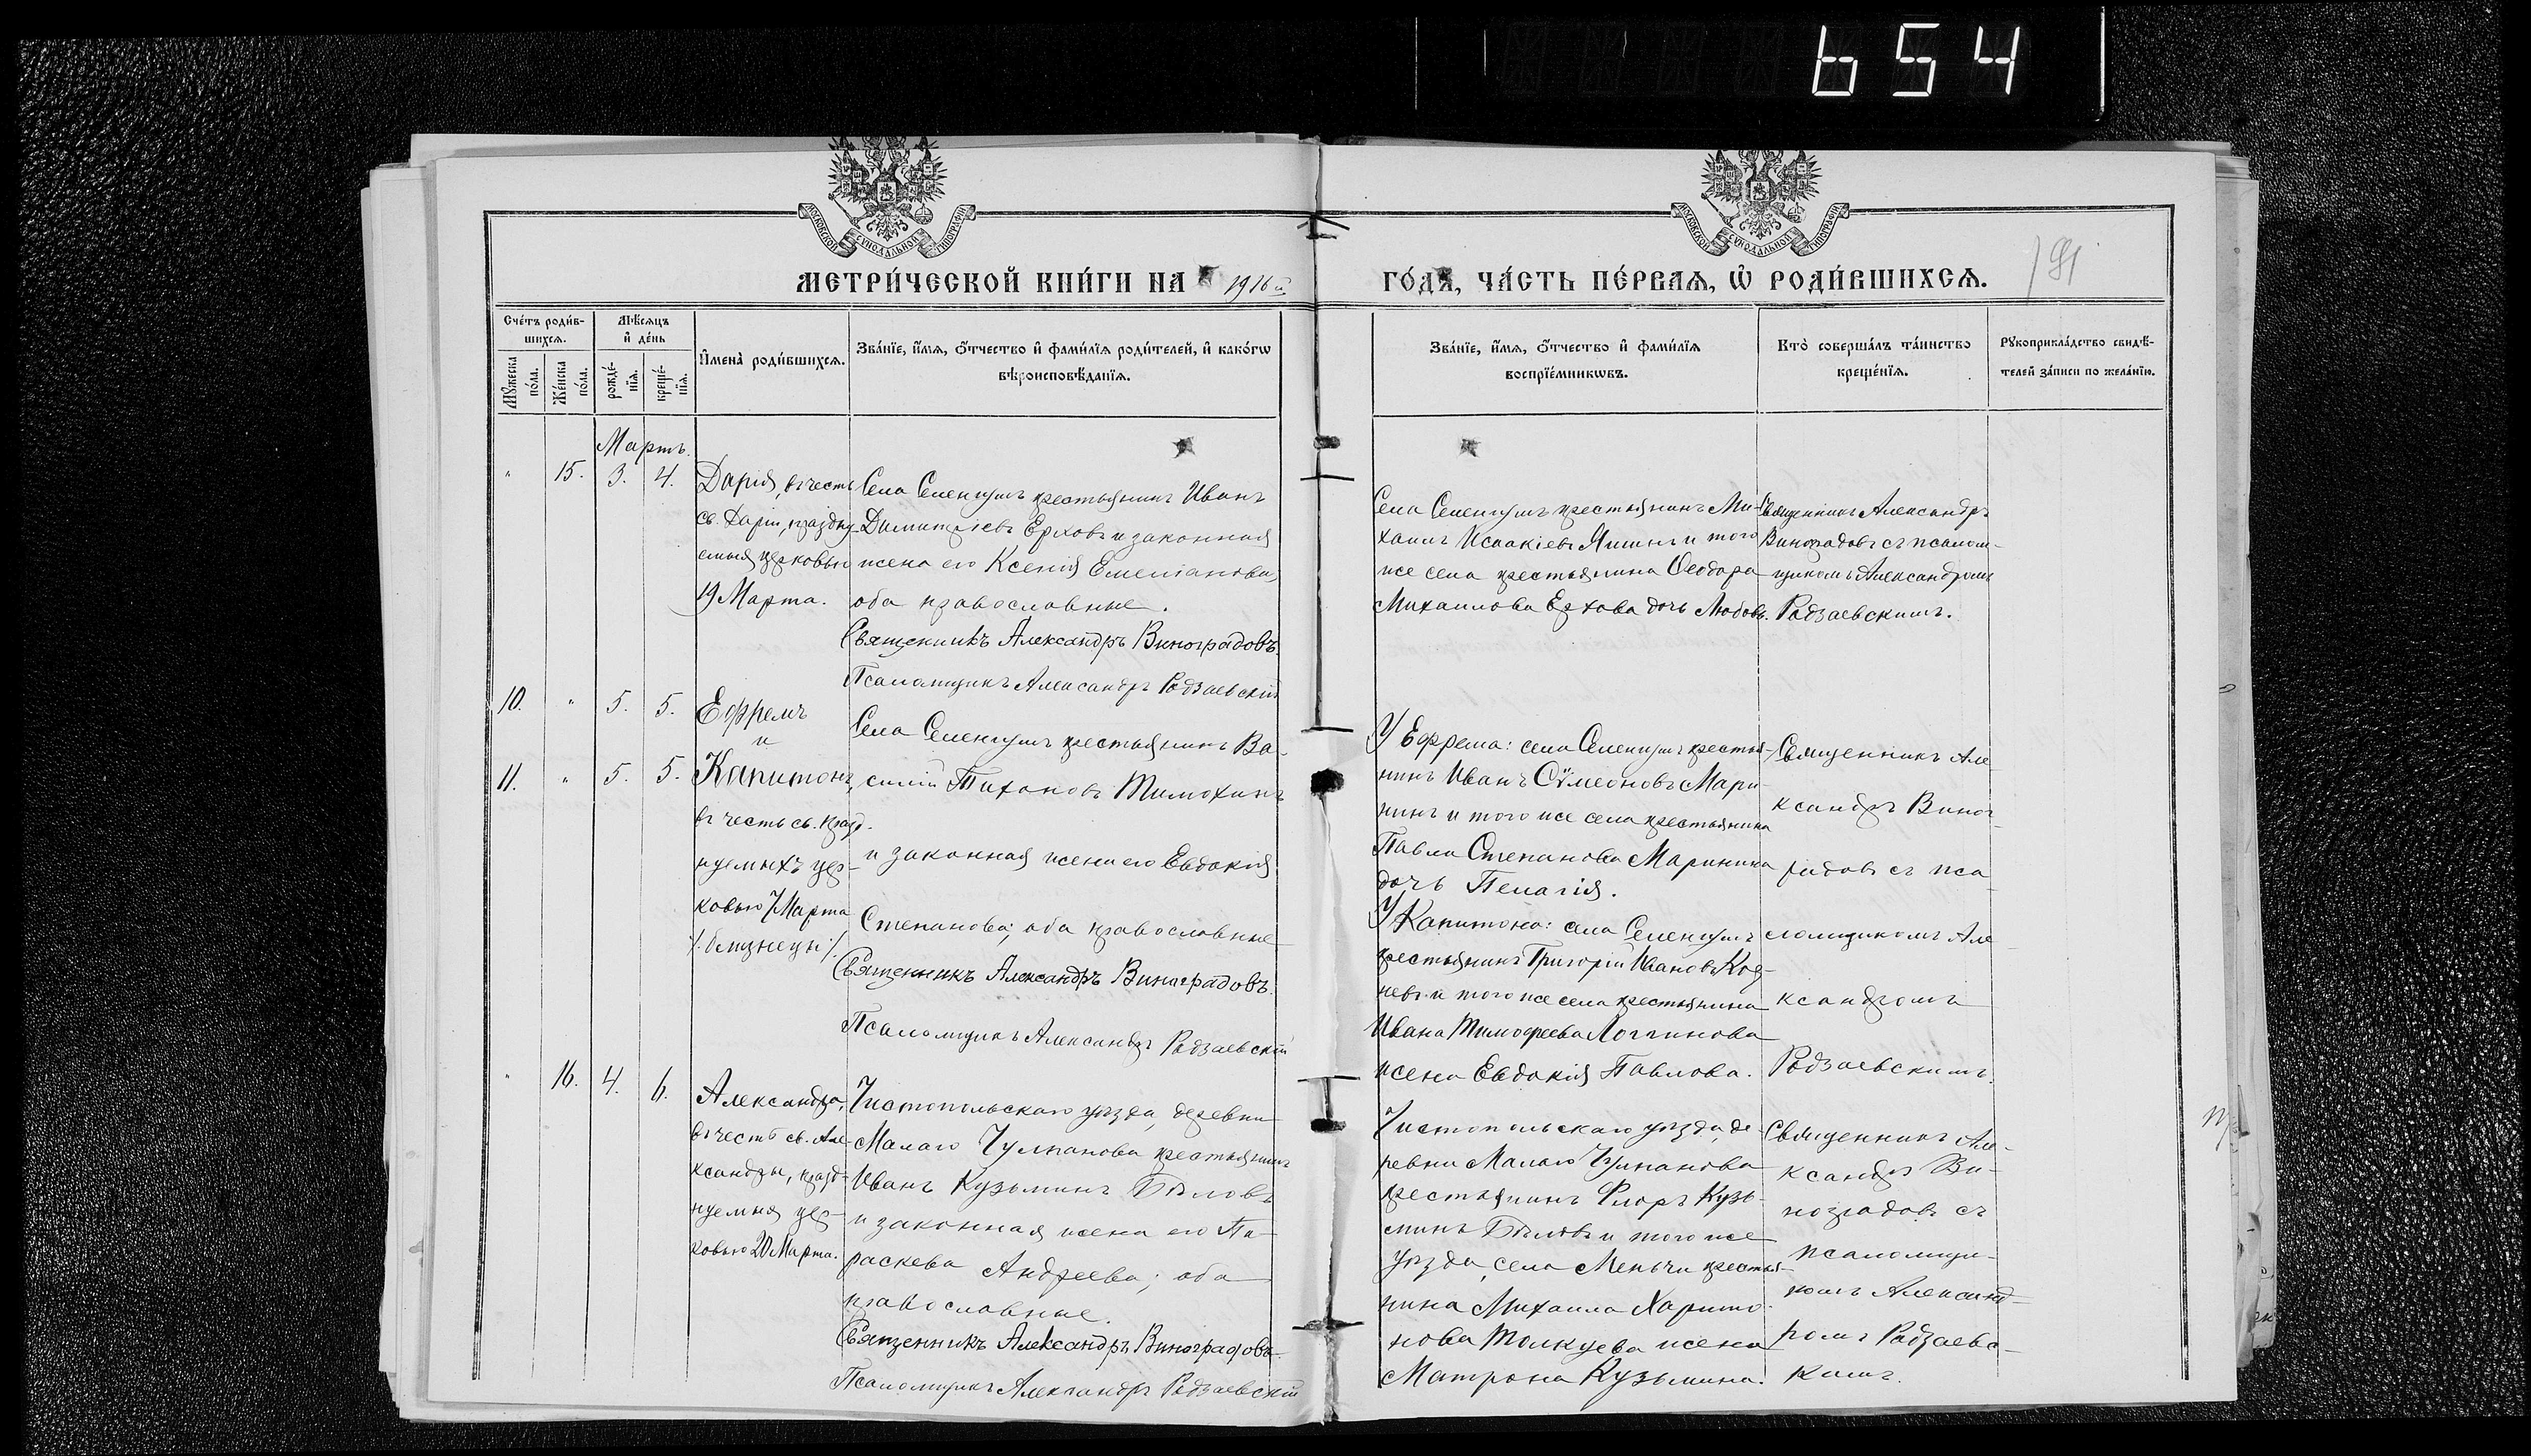 654
МОСКОВСКОЙ СѴНОДАЛЬНОЙ ТИПОГРАФІИ
МОСКОВСКОЙ СѴНОДАЛЬНОЙ ТИПОГРАФІИ
МЕТРИ́ЧЕСКОЙ КНИ́ГИ НА 1916й
ГО́ДА, ЧА́СТЬ ПЕ́РВАѦ, Ѡ҆ РОДИ́ВШИХСѦ.
Сче́тъ роди́в-
шихсѧ.
Мꙋ́жеска по́ла.
Же́нска по́ла.
Мѣ́сѧцъ
и҆ де́нь
рожде́-
нїѧ.
креще́-
нїѧ.
И҆мена̀ роди́вшихсѧ.
Зва́нїе, и҆́мѧ, ѻ҆́тчество и҆ фами́лїѧ роди́телей, и҆ како́гѡ
вѣроисповѣ́данїѧ.
Зва́нїе, и҆́мѧ, ѻ҆́тчество и҆ фами́лїѧ
воспрїе́мникѡвъ.
Кто̀ соверша́лъ та́инство
креще́нїѧ.
Рꙋкоприкла́дство свидѣ́-
телей за́писи по жела́нїю.
Мартъ.
" 15. 3. 4.
Дарія, въ честь
св. Даріи, праздну-
емыя церковью
19 Марта.
Села Селенгушъ крестьянинъ Иванъ
Димитріевъ Ерховъ и законная
жена его Ксенія Емеліанова,
оба православные.
Священникъ Александръ Виноградовъ.
Псаломщикъ Александръ Радзаевскій
Села Селенгушъ крестьянинъ Ми-
хаилъ Исаакіевъ Яшинъ и того
же села крестьянина Ѳеодора
Михаилова Ерхова дочь Любовь.
Священникъ Александръ
Виноградовъ съ псалом-
щикомъ Александромъ
Радзаевскимъ.
10. " 5. 5.
11. " 5. 5.
Ефремъ
и
Капитонъ,
въ честь св. празд-
нуемыхъ цер-
ковью 7 Марта
/:близнецы:/.
Села Селенгушъ крестьянинъ Ва-
силій Тихоновъ Тимохинъ
и законная жена его Евдокія
Степанова; оба православные
Священникъ Александръ Виноградовъ.
Псаломщикъ Александръ Радзаевскій
У Ефрема: села Селенгушъ крестья-
нинъ Иванъ Сѵмеоновъ Мари-
нинъ и того же села крестьянина
Павла Степанова Маринина
дочь Пелагія.
У Капитона: села Селенгушъ
крестьянинъ Григорій Ивановъ
и того же села крестьянина
Ивана Тимоѳеева Логгинова
жена Евдокія Павлова.
Священникъ Але-
ксандръ Виног-
радовъ съ пса-
ломщикомъ Але-
ксандромъ
Радзаевскимъ.
" 16. 4. 6.
Александра,
въ честь св. Але-
ксандры, празд-
нуемыя цер-
ковью 20 Марта.
Чистопольскаго уѣзда, деревни
Малаго Чулпанова крестьянинъ
Иванъ Кузьминъ Бѣловъ
и законная жена его Па-
раскева Андреева; оба
православные.
Священникъ Александръ Виноградовъ.
Псаломщикъ Александръ Радзаевскій
Чистопольскаго уѣзда, де-
ревни Малаго Чулпанова
крестьянинъ Флоръ Кузь-
минъ Бѣловъ и того же
уѣзда, села крестья-
нина Михаила Харито-
нова жена
Матрона Кузьмина.
Священникъ Але-
ксандръ Ви-
ноградовъ съ
псаломщи-
комъ Александ-
ромъ Радзаевс-
кимъ.